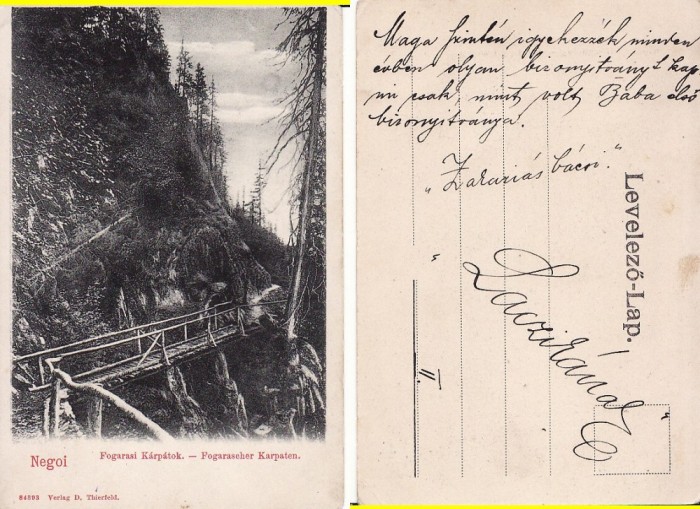 Negoi
Fogarasi Kárpátok. — Fogarascher Karpaten.
84893 Verlag D. Thierfeld.
Maga szintén igyekezzék minden
évben olyan bizonyitványt kap
ni csak, mint volt Baba első
bizonyitványa.
„Zakariás bácsi."
Levelező-Lap.
„Laczikának"